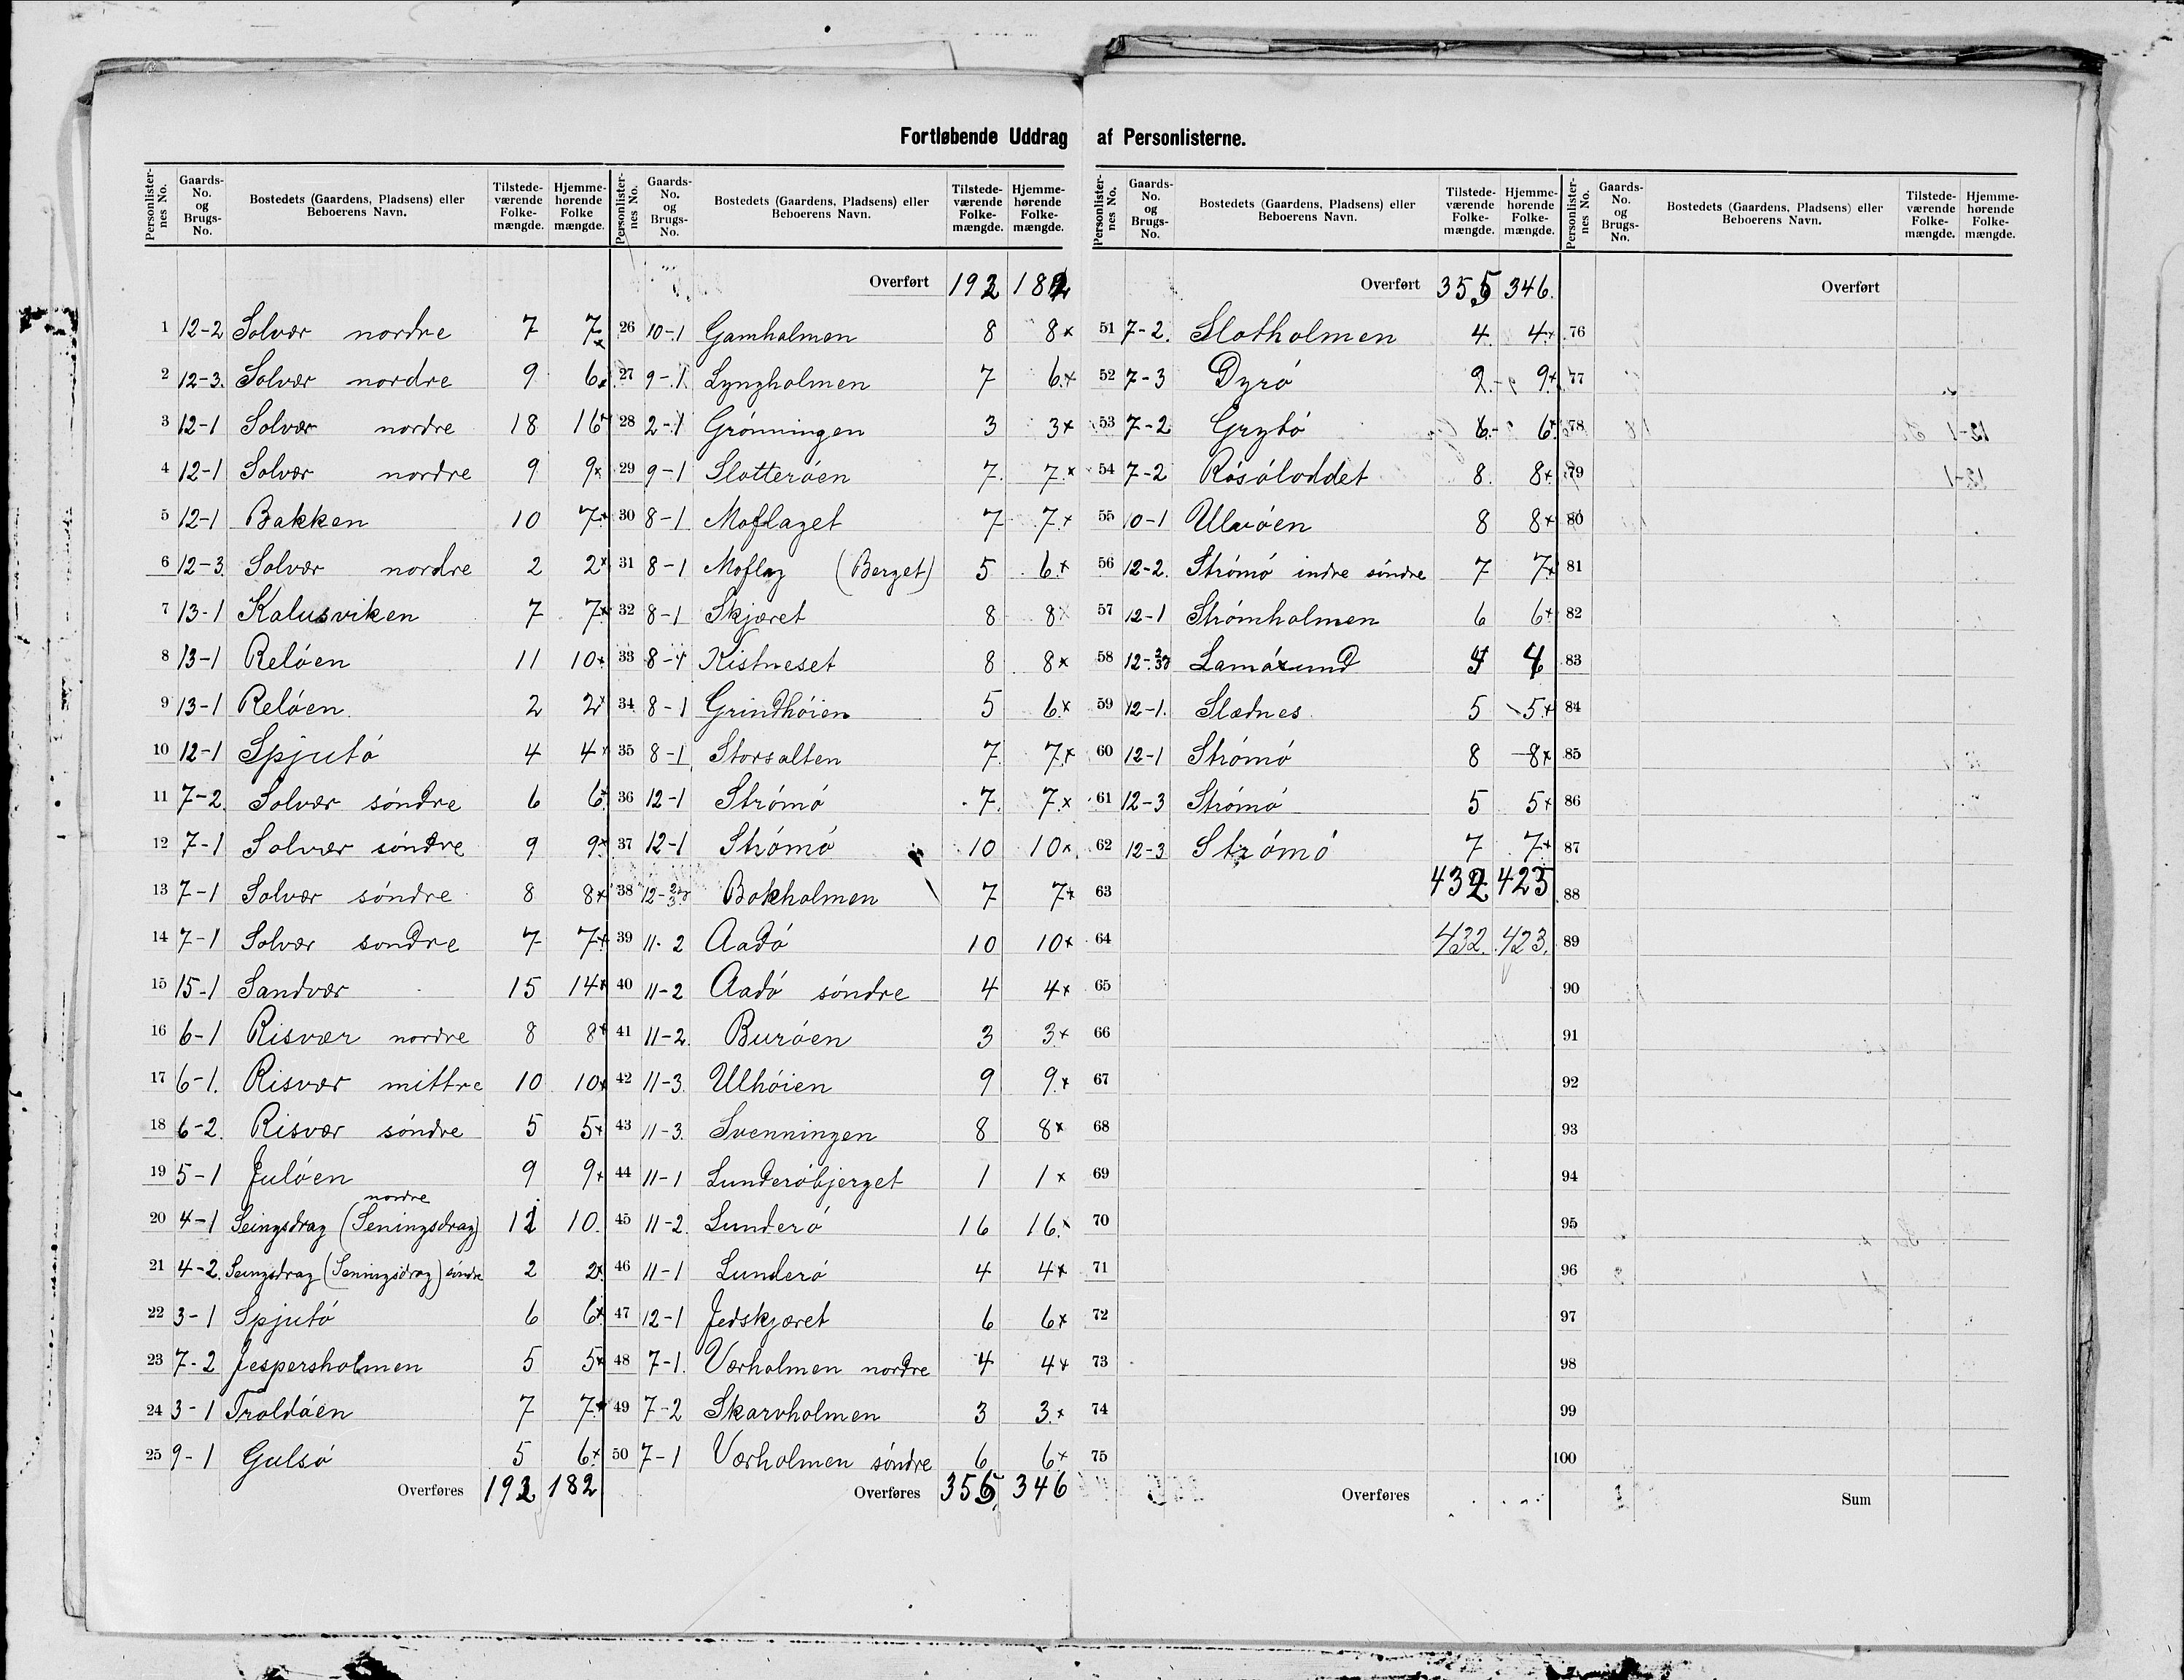 Fortløbende Uddrag af Personlisterne.
Personlister-nes No. Gaards-No. og Brugs-No. Bostedets (Gaardens, Pladsens) eller Beboerens Navn. Tilstede-værende Folke-mængde. Hjemme-hørende Folke mængde.
1 12-2 Solvær nordre 7 7x
2 12-3. Solvær nordre 9 6x
3 12-1 Solvær nordre 18 16x
4 12-1 Solvær nordre 9 9x
5 12-1 Bakken 10 7x
6 12-3. Solvær nordre 2 2x
7 13-1 Kalusviken 7 7x
8 13-1 Reløen 11 10x
9 13-1 Reløen 2 2x
10 12-1 Spjutø 4 4x
11 7-2. Solvær søndre 6 6x
12 7-1 Solvær søndre 9 9x
13 7-1 Solvær søndre 8 8x
14 7-1 Solvær sondre 7 7x
15 15-1 Sandvær 15 14x
16 6-1 Risvær nordre 8 8x
17 6-1. Risvær mittre 10 10x
18 6-2. Risvær søndre 5 5x
19 5-1 Juløen 9 9x
20 4-1 Seingsdrag (Seningsdrag) nordre 10.
21 4-2. Seingsdrag (Seningsdrag) søndre 2 2x
22 3-1 Spjutø 6 6x
23 7-2 Jespersholmen 5 5x
24 3-1 Troldøen 7 7x
25 9-1 Gulsø 5 6x
Overføres 192 182
Personlister-nes No. Gaards-No. og Brugs-No. Bostedets (Gaardens, Pladsens) eller Beboerens Navn. Tilstede-værende Folke-mængde. Hjemme-hørende Folke-mængde.
Overført 192 182
26 10-1 Gamholmen 8 8x
27 9-1 Lyngholmen 7 6x
28 2-1 Grønningen 3 3x
29 9-1 Slotterøen 7. 7x
30 8-1 Moflaget 7 7x
31 8-1 Moflag (Berget) 5 6x
32 8-1 Skjæret 8 8x
33 8-1 Kistneset 8 8x
34 8-1 Grindhøien 5 6x
35 8-1 Storsalten 7. 7x
36 12-1 Strømø 7. 7x
37 12-1 Strømø 10 10x
38 Bokholmen 7 7x
39 11-2 Aadø 10 10x
40 11-2 Aadø søndre 4 4x
41 11-2. Burøen 3 3x
42 11-3. Ulhøien 9 9x
43 11-3. Svenningen 8 8x
44 11-1 Lunderøbjerget 1 1x
45 11-2. Lunderø 16 16x
46 11-1 Lunderø 4 4x
47 12-1 Jedskjæret 6 6x
48 7-1. Værholmen nordre 4 4x
49 7-2 Skarvholmen 3 3x
50 7-1 Værholmen søndre 6 6x
Overføres 355 346
Personlister-nes No. Gaards-No. og Brugs-No. Bostedets (Gaardens, Pladsens) eller Beboerens Navn. Tilstede-værende Folke-mængde. Hjemme-hørende Folke-mængde.
Overført 355 346.
51 7-2. Slotholmen 4. 4x
52 7-3 Dyrø 9x
53 7-2 Grytø 6. 6x
54 7-2 Røsøloddet 8. 8x
55 10-1 Ulvøen 8 8x
56 12-2. Strømø indre søndre 7 7x
57 12-1 Strømholmen 6 6x
58 Lamøsund 4 4
59 12-1. Slædnes 5 5x
60 12-1 Strømø 8 8x
61 12-3 Strømø 5 5x
62 12-3 Strømø 7 7x
63 432 423
64 432. 423.
65
66
67
68
69
70
71
72
73
74
75
Overføres
Personlister-nes No. Gaards-No. og Brugs-No. Bostedets (Gaardens, Pladsens) eller Beboerens Navn. Tilstede-værende Folke-mængde. Hjemme-hørende Folke-mængde.
Overført
76
77
78
79
80
81
82
83
84
85
86
87
88
89
90
91
92
93
94
95
96
97
98
99
100
Sum